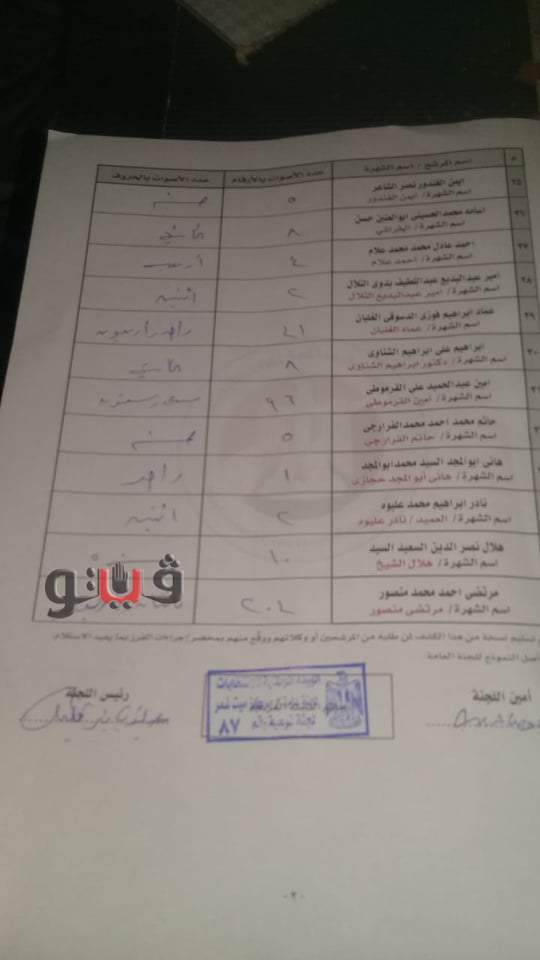 م اسم المرشح / اسم الشهرة عدد الأصوات بالأرقام عدد الأصوات بالحروف
٢٥ ايمن الغندور نصر الشاعر
اسم الشهرة / ايمن الغندور ٥ خمسة
٢٦ اسامه محمد الحسينى ابوالعنين حسن
اسم الشهرة / ٨ ثمانية
٢٧ احمد عادل محمد محمد علام
اسم الشهرة / احمد علام ٤ أربعة
٢٨ امير عبدالبديع عبداللطيف بدوى التلال
اسم الشهرة / امير عبدالبديع التلال ٢ اثنين
٢٩ عماد ابراهيم فوزى الدسوقى الغلبان
اسم الشهرة / عماد الغلبان ٤١ واحد وأربعون
٣٠ ابراهيم على ابراهيم الشناوى
اسم الشهرة / دكتور ابراهيم الشناوى ٨ ثمانية
امين عبدالحميد على القرموطى
اسم الشهرة / أمين القرموطى ٩٦
حاتم محمد احمد محمد القرارجى
اسم الشهرة / حاتم القرارجى ٥ خمسة
هانى ابوالمجد السيد محمد ابوالمجد
اسم الشهرة / هانى أبو المجد حجازى ١ واحد
نادر ابراهيم محمد عليوه
اسم الشهرة / العميد / نادر عليوه ٢ اثنين
هلال نصر الدين السعيد السيد
اسم الشهرة / هلال الشيخ ١٠
مرتضى احمد محمد منصور
اسم الشهرة / مرتضى منصور ٢٠٤
ڤيتو
تسليم نسخة من هذا الكشف لمن طلبه من المرشحين أو وكلائهم ووقع منهم بمحضر إجراءات الفرز بما يفيد الاستلام.
أصل النموذج للجنة العامة.
أمين اللجنة
رئيس اللجنة
الهيئة الوطنية للانتخابات
ميت غمر
لجنة فرعية رقم
٨٧